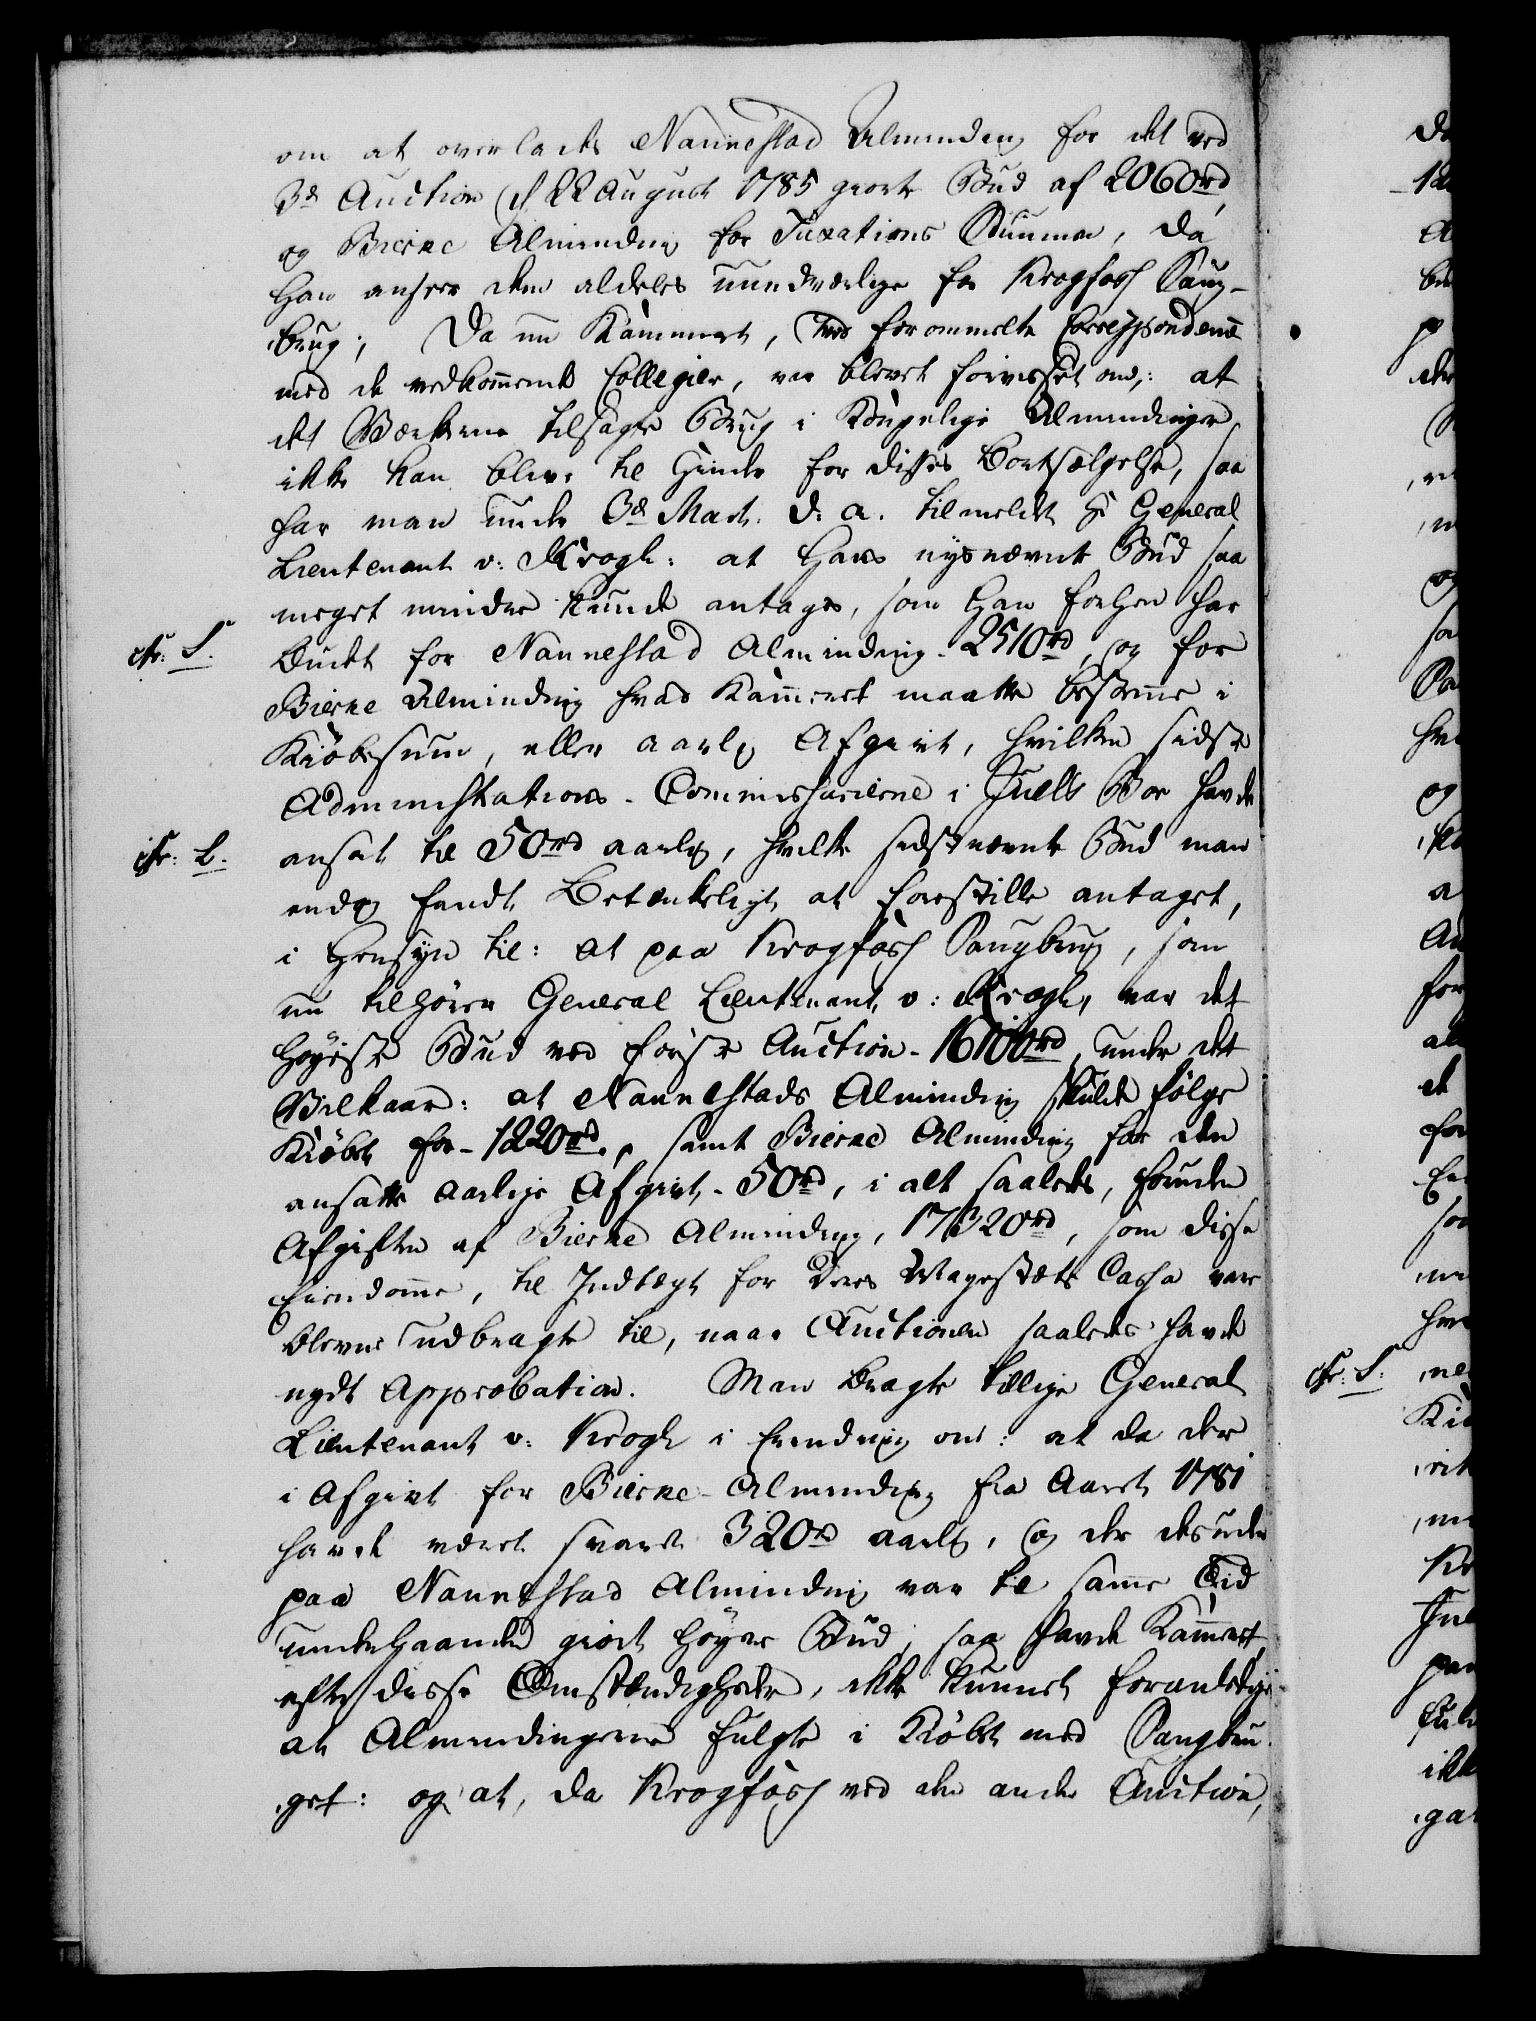 om at overlades Nannestad Alminding for det ved
3de Auction d 22 August 1785 giorte Bud af 2060rd,
og Bierke Alminding for Taxations Summen, da
Han anseer dem aldeles uundværlige for Krogfoss Saug-
brug; Da nu Kammeret, ved forommeldte Correspondence
med de vedkommende Collegier, var blevet forvisset om,: at
det Værkerne tilsagte Brug i Kongelige Almindinger
ikke kan blive til Hinder for disses Bortsælgelse, saa
har man under 3de Mart. d: a. tilmeldt Hr General
Lieutenant v: Krogh: at Hans nysnævnte Bud saa
meget mindre kunde antages, som Han forhen har
cfr: S.
budet for Nannestad Alminding - 2510rd, og for
Bierke Alminding hvad Kammeret maatte bestemme i
Kiøbesum, eller aarlig Afgivt, hvilken sidste
Administrations-Commissairerne i Juells Boe havde
cfr: L.
ansat til 50rd aarlig, hvilke sidstnævnte Bud man
endog fandt Betænkeligt at forestille antaget,
i Hensyn til: at paa Krogfoss Saugbrug, som
nu tilhører General Lieutenant v: Krogh, var det
høyeste Bud ved første Auction - 16100rd, under det
Vilkaar: at Nannestads Alminding skulde følge
Kiøbet for - 1220rd, samt Bierke Alminding for den
ansatte aarlige Afgivt - 50rd, i alt saaledes, foruden
Afgiften af Bierke Alminding, 17320rd, som disse
Eiendomme, til Indtægt for Deres Majestæts Cassa vare
blevne udbragte til, naar Auctionen saaledes havde
nydt Approbation. Man bragte tillige General
Lieutenant v: Krogh i Erindring om: at da der
i Afgivt for Bierke-Alminding fra Aaret 1781
havde været svaret 320rd aarlig, og der desuden
paa Nannestad Alminding var til samme Tid
underhaanden giort høyere Bud, saa havde Kammeret,
efter disse Omstændigheder, ikke kunnet foranledige
at Almindingerne fulgte i Kiøbet med Saugbru-
get: og at, da Krogfoss ved den anden Auction,
cfr: S.